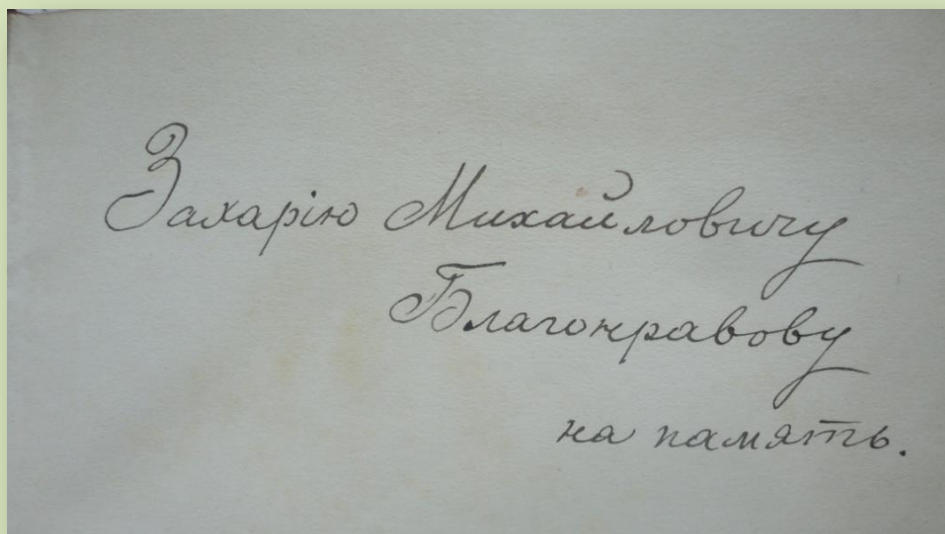 Захарію Михайловичу
Благонравову
на память.